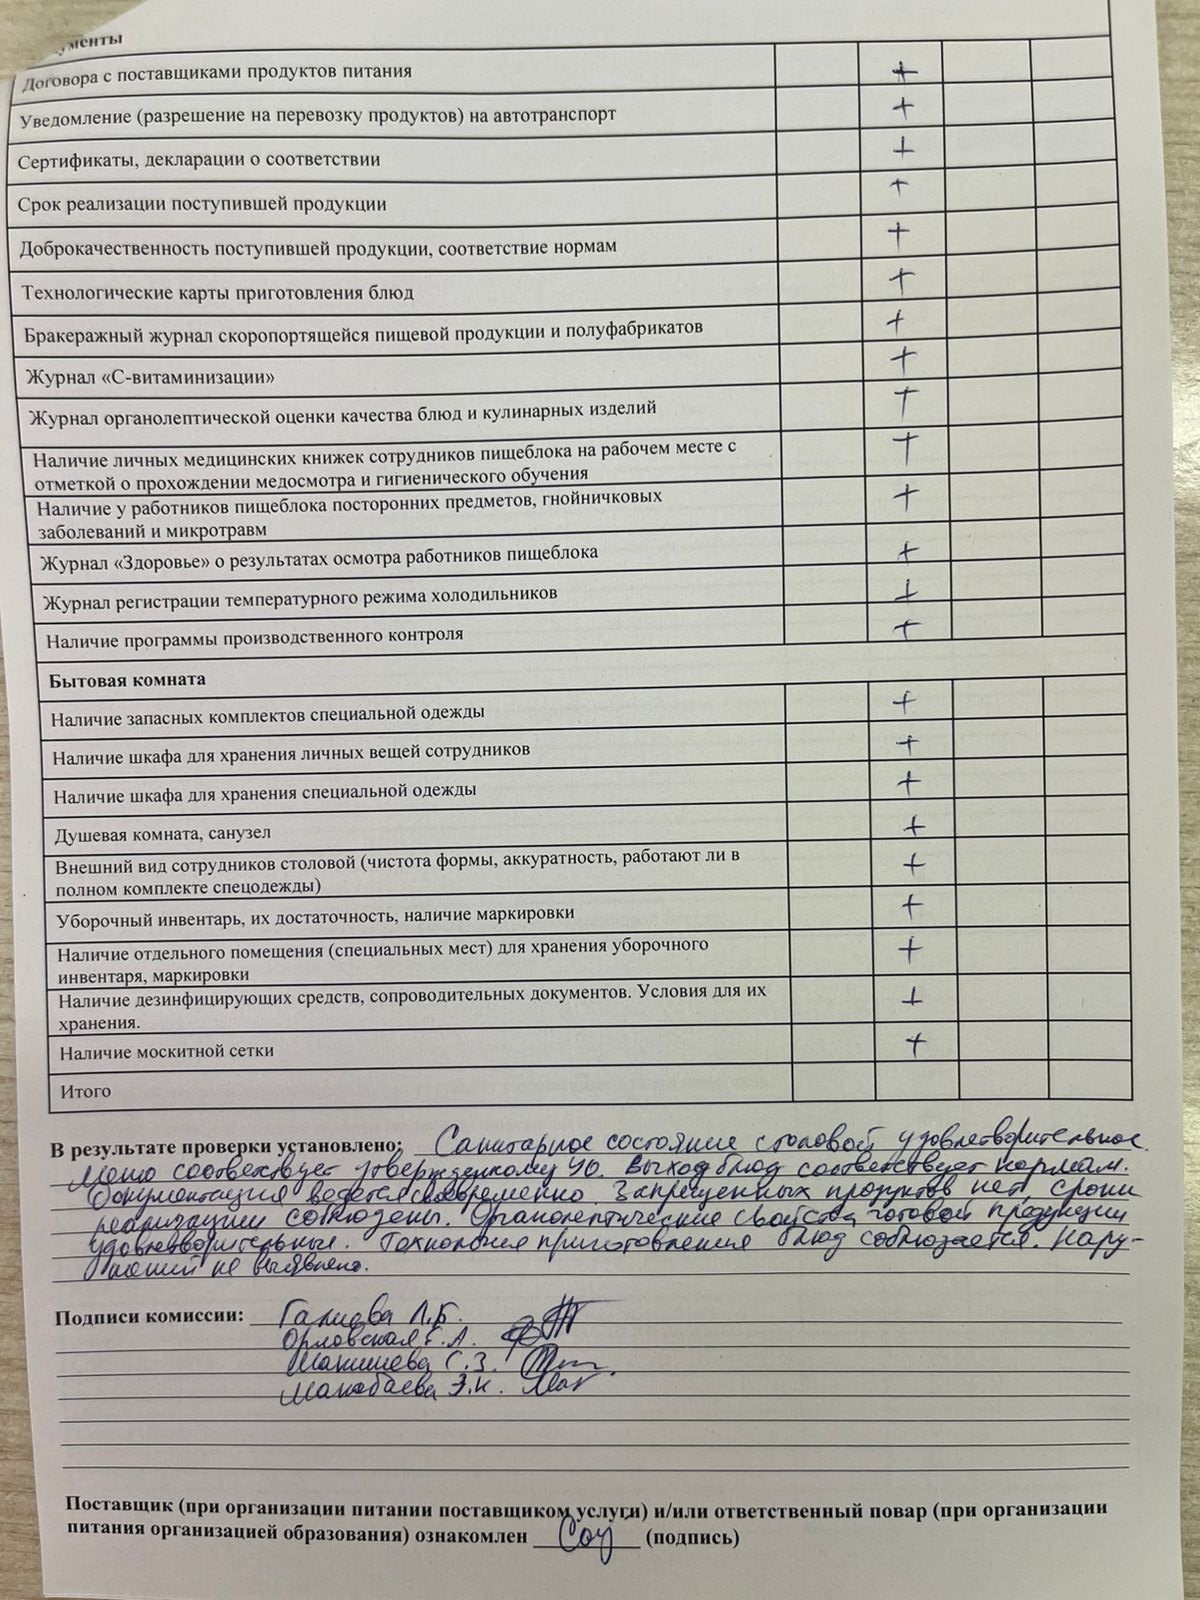 ументы
Договора с поставщиками продуктов питания +
Уведомление (разрешение на перевозку продуктов) на автотранспорт +
Сертификаты, декларации о соответствии +
Срок реализации поступившей продукции +
Доброкачественность поступившей продукции, соответствие нормам +
Технологические карты приготовления блюд +
Бракеражный журнал скоропортящейся пищевой продукции и полуфабрикатов +
Журнал «С-витаминизации» +
Журнал органолептической оценки качества блюд и кулинарных изделий +
Наличие личных медицинских книжек сотрудников пищеблока на рабочем месте с
отметкой о прохождении медосмотра и гигиенического обучения +
Наличие у работников пищеблока посторонних предметов, гнойничковых
заболеваний и микротравм +
Журнал «Здоровье» о результатах осмотра работников пищеблока +
Журнал регистрации температурного режима холодильников +
Наличие программы производственного контроля +
Бытовая комната
Наличие запасных комплектов специальной одежды +
Наличие шкафа для хранения личных вещей сотрудников +
Наличие шкафа для хранения специальной одежды +
Душевая комната, санузел +
Внешний вид сотрудников столовой (чистота формы, аккуратность, работают ли в
полном комплекте спецодежды) +
Уборочный инвентарь, их достаточность, наличие маркировки +
Наличие отдельного помещения (специальных мест) для хранения уборочного
инвентаря, маркировки +
Наличие дезинфицирующих средств, сопроводительных документов. Условия для их
хранения. +
Наличие москитной сетки +
Итого
В результате проверки установлено: Санитарное состояние столовой удовлетворительное.
Меню соотвествует утвержденному УО. Выход блюд соответствует нормам.
Документация ведется своевременно. Запрещенных продуктов нет, сроки
реализации соблюдены. Органолептические свойства готовой продукции
удовлетворительные. Технология приготовления блюд соблюдается. Нару-
шений не выявлено.
Подписи комиссии: Галиева Л.Б.
Орловская Г.А.
Макишева С.З.
Манабаева Э.К.
Поставщик (при организации питании поставщиком услуги) и/или ответственный повар (при организации
питания организацией образования) ознакомлен (подпись)